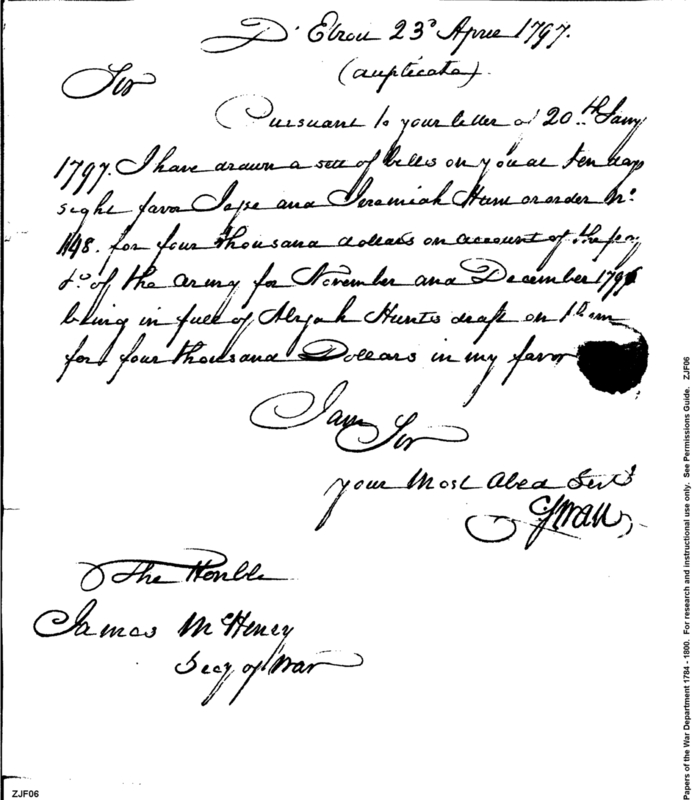 D'Etroit 23d April 1797.
(duplicate).
Sir
Pursuant to your letter of 20th Jany
1797. I have drawn a sett of bills on you at ten days
sight favor Jesse and Jeremiah Hunt or order No.
148. for four thousand dollars on account of the pay
&c of the army for November and December 1796
being in full of Abijah Hunts draft on them
for four thousand Dollars in my favor
I am
Sir
your Most Obed Servt
CSwan
The Honble
James McHenry
Secy of War
ZJF06
Papers of the War Department 1784 - 1800. For research and instructional use only. See Permissions Guide. ZJF06